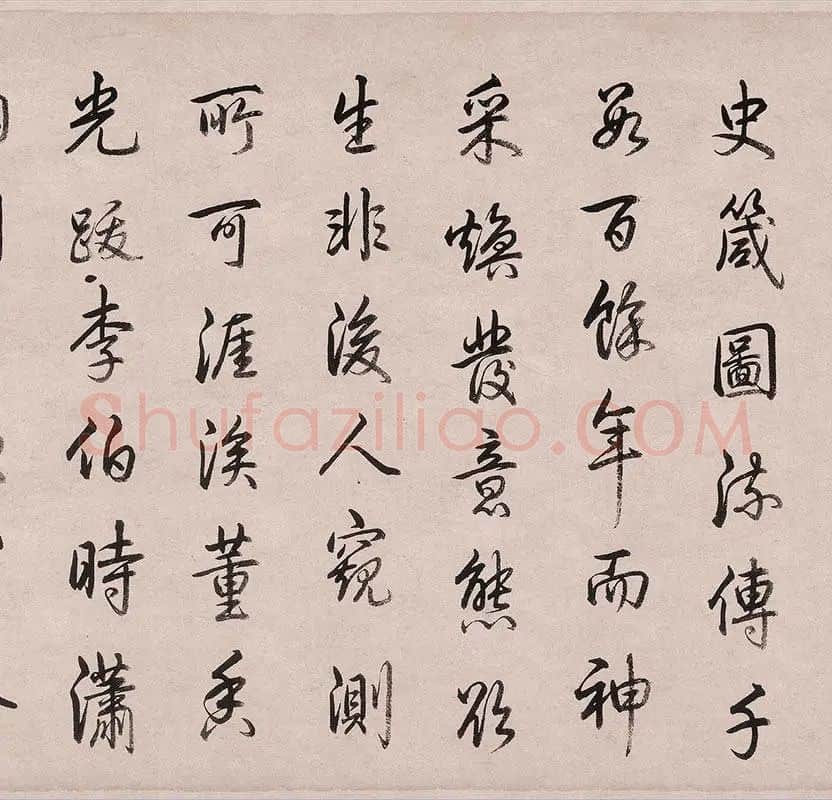 史箴圖流傳千
數百餘年而神
采煥發意態欲
生非後人窺測
所可涯涘董香
光跋李伯時瀟
Shufaziliao.COM